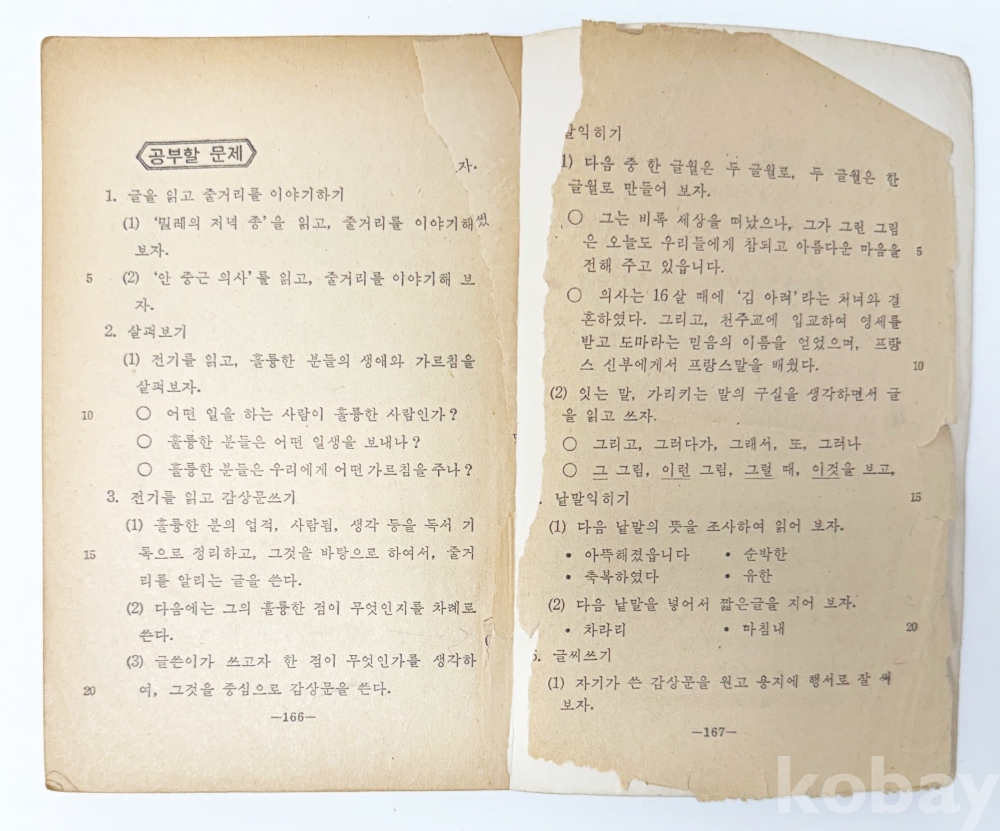 공부할 문제
자.
1. 글을 읽고 줄거리를 이야기하기
(1) '밀레의 저녁 종'을 읽고, 줄거리를 이야기해
보자.
5 (2) '안 중근 의사'를 읽고, 줄거리를 이야기해 보
자.
2. 살펴보기
(1) 전기를 읽고, 훌륭한 분들의 생애와 가르침을
살펴보자.
10 ○ 어떤 일을 하는 사람이 훌륭한 사람인가?
○ 훌륭한 분들은 어떤 일생을 보내나?
○ 훌륭한 분들은 우리에게 어떤 가르침을 주나?
3. 전기를 읽고 감상문쓰기
(1) 훌륭한 분의 업적, 사람됨, 생각 등을 독서 기
15 록으로 정리하고, 그것을 바탕으로 하여서, 줄거
리를 알리는 글을 쓴다.
(2) 다음에는 그의 훌륭한 점이 무엇인지를 차례로
쓴다.
(3) 글쓴이가 쓰고자 한 점이 무엇인가를 생각하
20 여, 그것을 중심으로 감상문을 쓴다.
—166—
말익히기
1) 다음 중 한 글월은 두 글월로, 두 글월은 한
글월로 만들어 보자.
○ 그는 비록 세상을 떠났으나, 그가 그린 그림
은 오늘도 우리들에게 참되고 아름다운 마음을 5
전해 주고 있읍니다.
○ 의사는 16살 때에 '김 아려'라는 처녀와 결
혼하였다. 그리고, 천주교에 입교하여 영세를
받고 도마라는 믿음의 이름을 얻었으며, 프랑
스 신부에게서 프랑스말을 배웠다. 10
(2) 잇는 말, 가리키는 말의 구실을 생각하면서 글
을 읽고 쓰자.
○ 그리고, 그러다가, 그래서, 또, 그러나
○ 그 그림, 이런 그림, 그럴 때, 이것을 보고,
낱말익히기 15
(1) 다음 낱말의 뜻을 조사하여 읽어 보자.
• 아뜩해졌읍니다 • 순박한
• 축복하였다 • 유한
(2) 다음 낱말을 넣어서 짧은글을 지어 보자.
• 차라리 • 마침내 20
글씨쓰기
(1) 자기가 쓴 감상문을 원고 용지에 행서로 잘 써
보자.
—167—
kobay